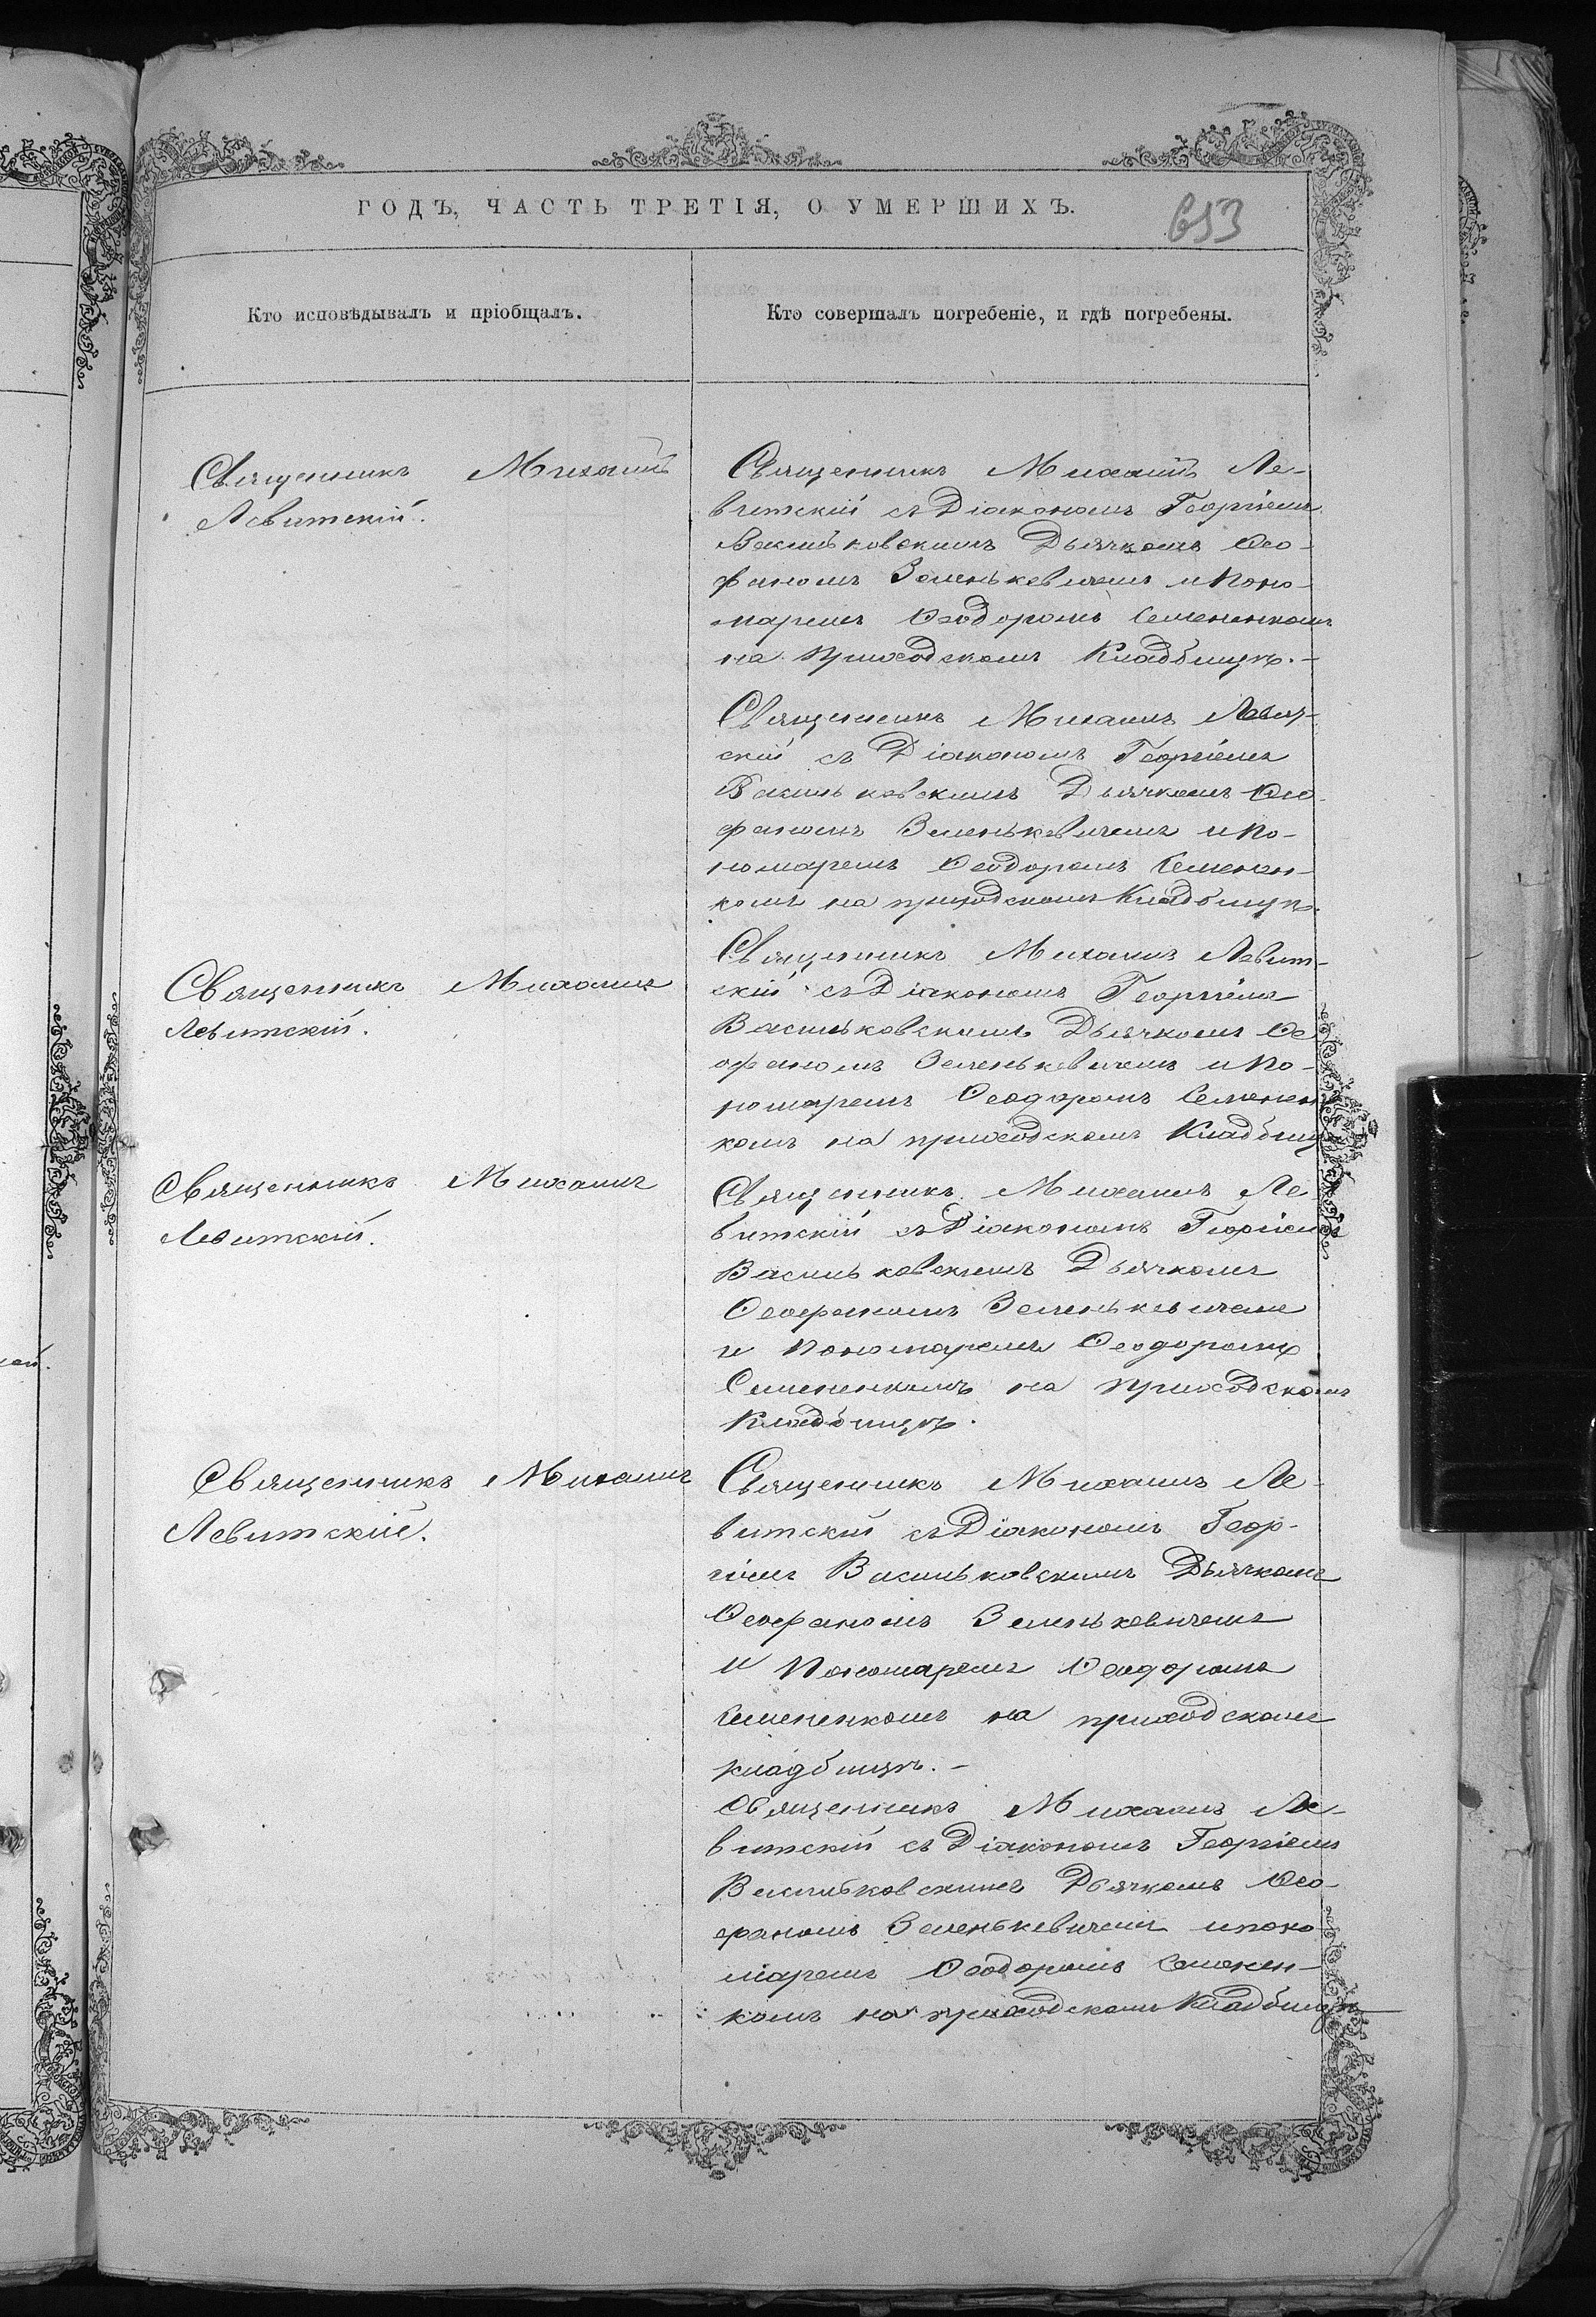 ГОДЪ, ЧАСТЬ ТРЕТІЯ, О УМЕРШИХЪ.
653
Кто исповѣдывалъ и пріобщалъ.
Кто совершалъ погребеніе, и гдѣ погребены.
Священникъ Михаилъ
Левитскій.
Священникъ Михаилъ Ле-
витскій съ Діакономъ Георгіемъ
Васильковскимъ Дьячкомъ Ѳео-
фаномъ Зеленькевичемъ и Поно-
маремъ Ѳеодоромъ Семененкомъ
на приходскомъ Кладбищѣ.-
Священникъ Михаилъ Левит-
скій съ Діакономъ Георгіемъ
Васильковскимъ Дьячкомъ Ѳео-
фаномъ Зеленькевичемъ и По-
номаремъ Ѳеодоромъ Семенен-
комъ на приходскомъ Кладбищѣ.
Священникъ Михаилъ
Левитскій.
Священникъ Михаилъ Левит-
скій съ Діакономъ Георгіемъ
Васильковскимъ Дьячкомъ Ѳе
офаномъ Зеленькевичемъ и По-
номаремъ Ѳеодоромъ Семенен
комъ на приходскомъ Кладбищѣ
Священникъ Михаилъ
Левитскій.
Священникъ Михаилъ Ле-
витскій съ Діакономъ Георгіемъ
Васильковскимъ Дьячкомъ
Ѳеофаномъ Зеленькевичемъ
и Пономаремъ Ѳеодоромъ
Семененкомъ на приходскомъ
Кладбищѣ.
Священникъ Михаилъ
Левитскій.
Священникъ Михаилъ Ле-
витскій съ Діакономъ Геор-
гіемъ Васильковскимъ Дьячкомъ
Ѳеофаномъ Зеленькевичемъ
и Пономаремъ Ѳеодоромъ
Семененкомъ на приходскомъ
кладбищѣ.-
Священникъ Михаилъ Ле-
витскій съ Діакономъ Георгіемъ
Васильковскимъ Дьячкомъ Ѳео-
фаномъ Зеленькевичемъ и поно
маремъ Ѳеодоромъ Семенен-
комъ на приходскомъ Кладбищѣ